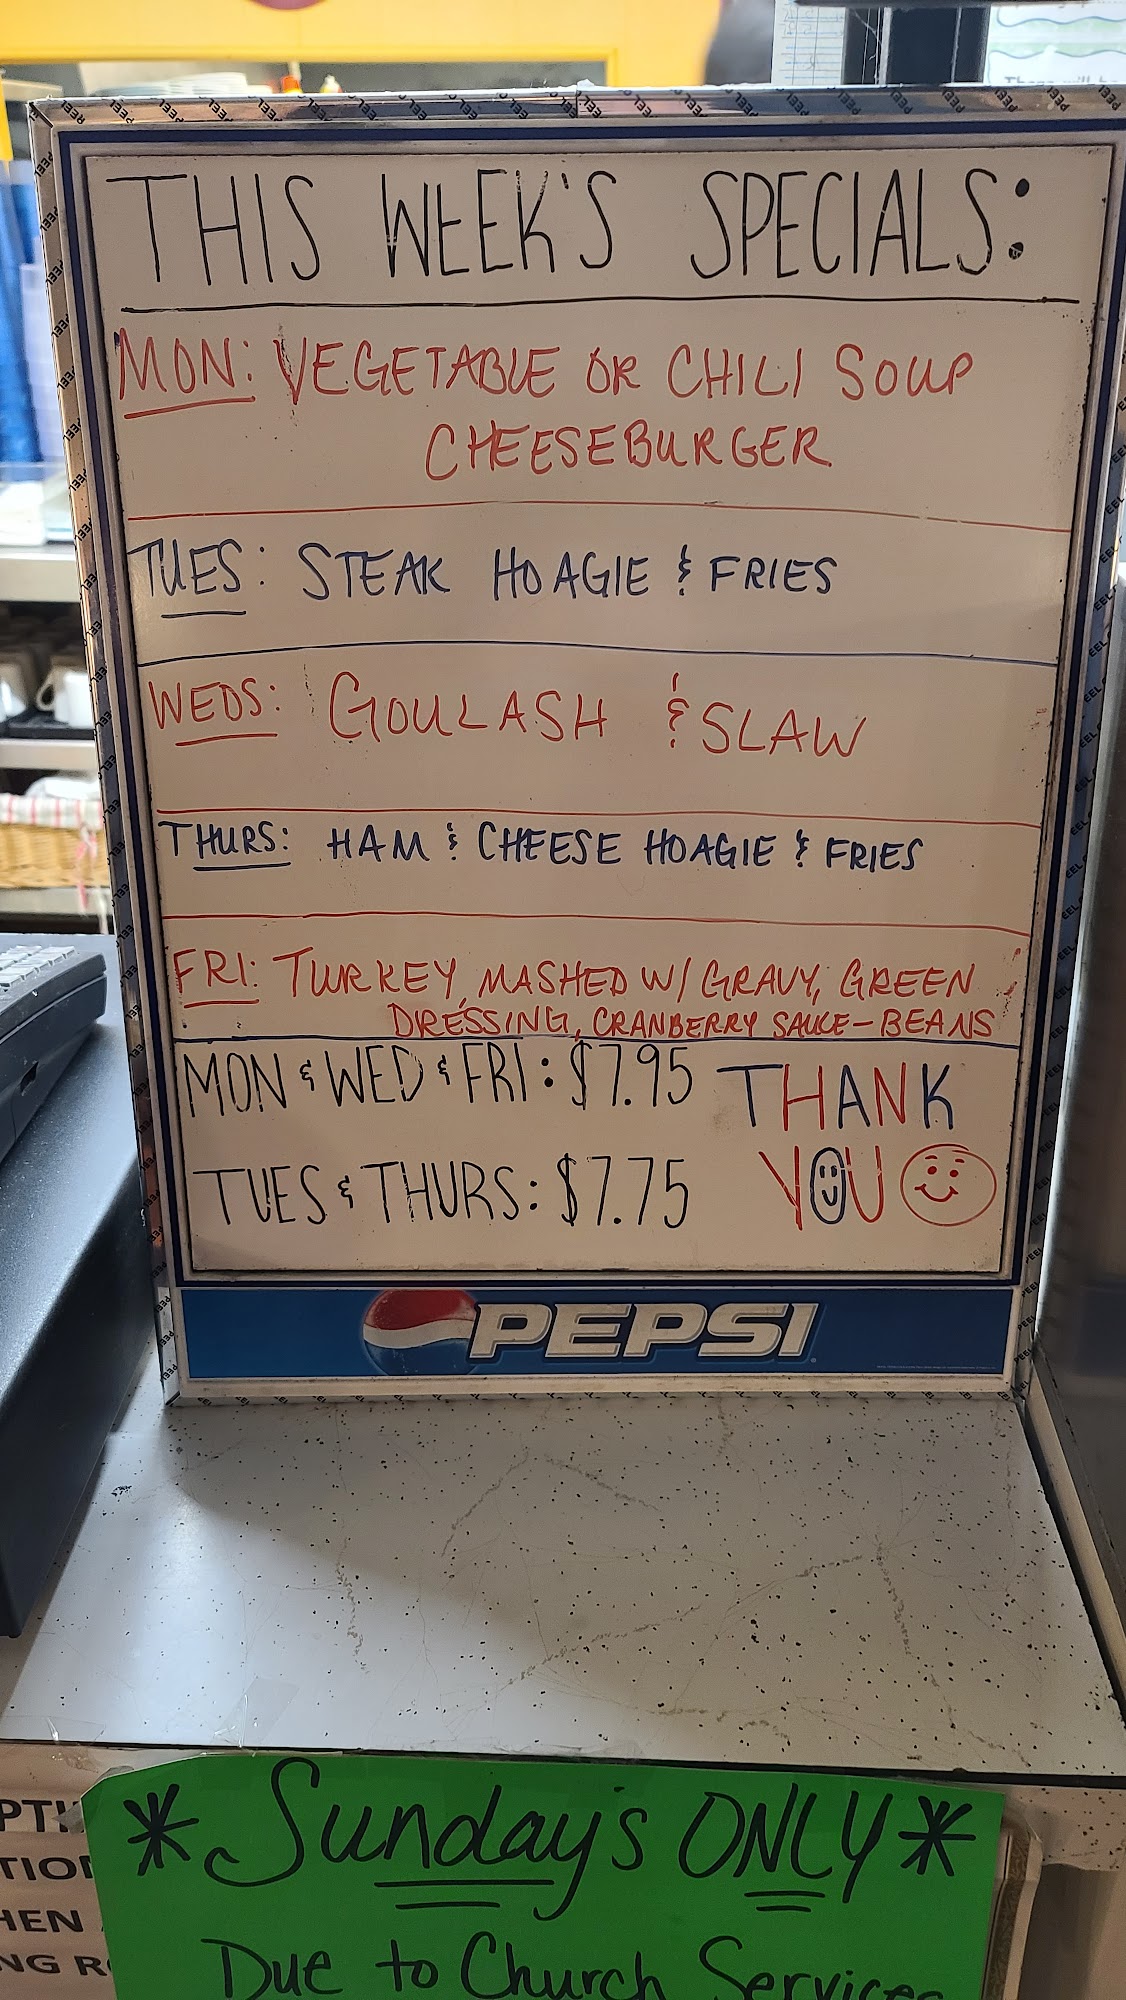 THIS WEEK'S SPECIALS:
MON: VEGETABLE OR CHILI SOUP
CHEESEBURGER
TUES: STEAK HOAGIE & FRIES
WEDS: GOULASH & SLAW
THURS: HAM & CHEESE HOAGIE & FRIES
FRI: TURKEY, MASHED W/ GRAVY, GREEN
DRESSING, CRANBERRY SAUCE - BEANS
MON & WED & FRI: $7.95 THANK
TUES & THURS: $7.75 YOU
PEPSI
* Sunday's ONLY *
Due to Church Services